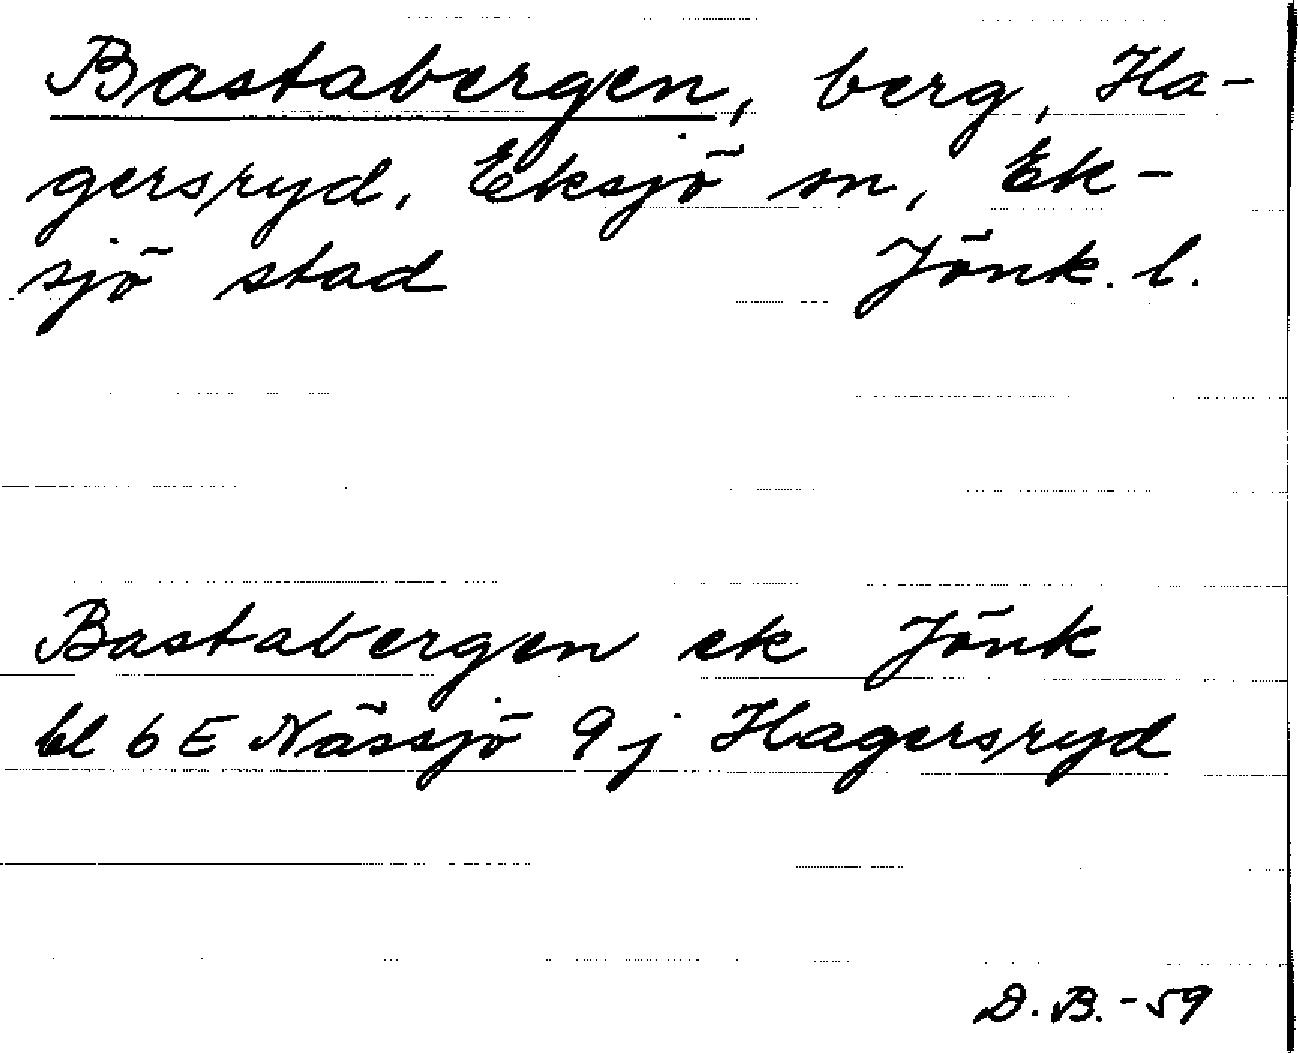 Bastabergen, berg, Ha-
gersryd, Eksjö sn, Ek-
sjö stad Jönk. l.
Bastabergen ek Jönk
bl 6 E Nässjö 9 j Hagersryd
D. B. - 59